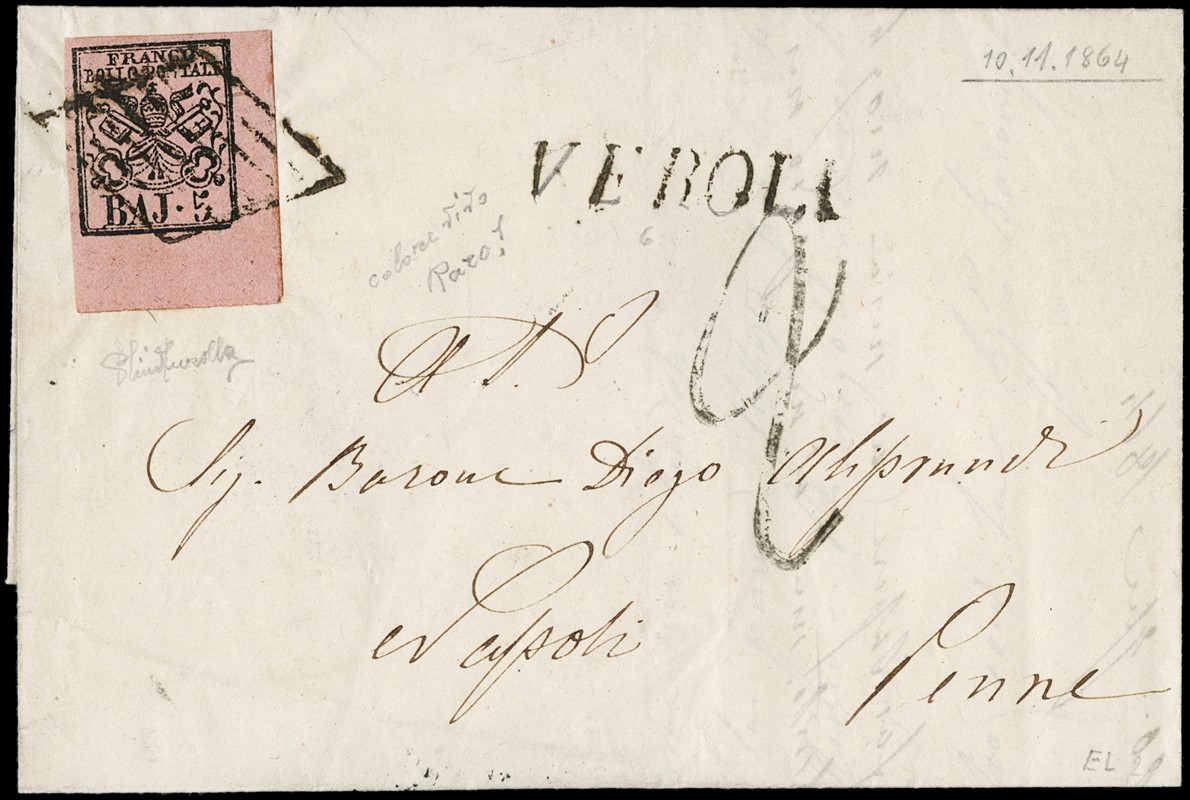 FRANCO
BOLLO POSTALE
BAJ. 5
10.11.1864
VEROLI
6
colore vivo
Raro!
2
Sig. Barone Diego Aliprandi
Napoli
Penne
EL